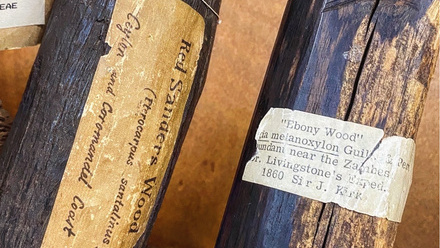 EAE
Red Sanders Wood
(Pterocarpus santalinus
Ceylon and Coromandel Coast
"Ebony Wood"
melanoxylon Guil
near the Zambes
Livingstone's Exped.
1860 Sir J. Kirk.